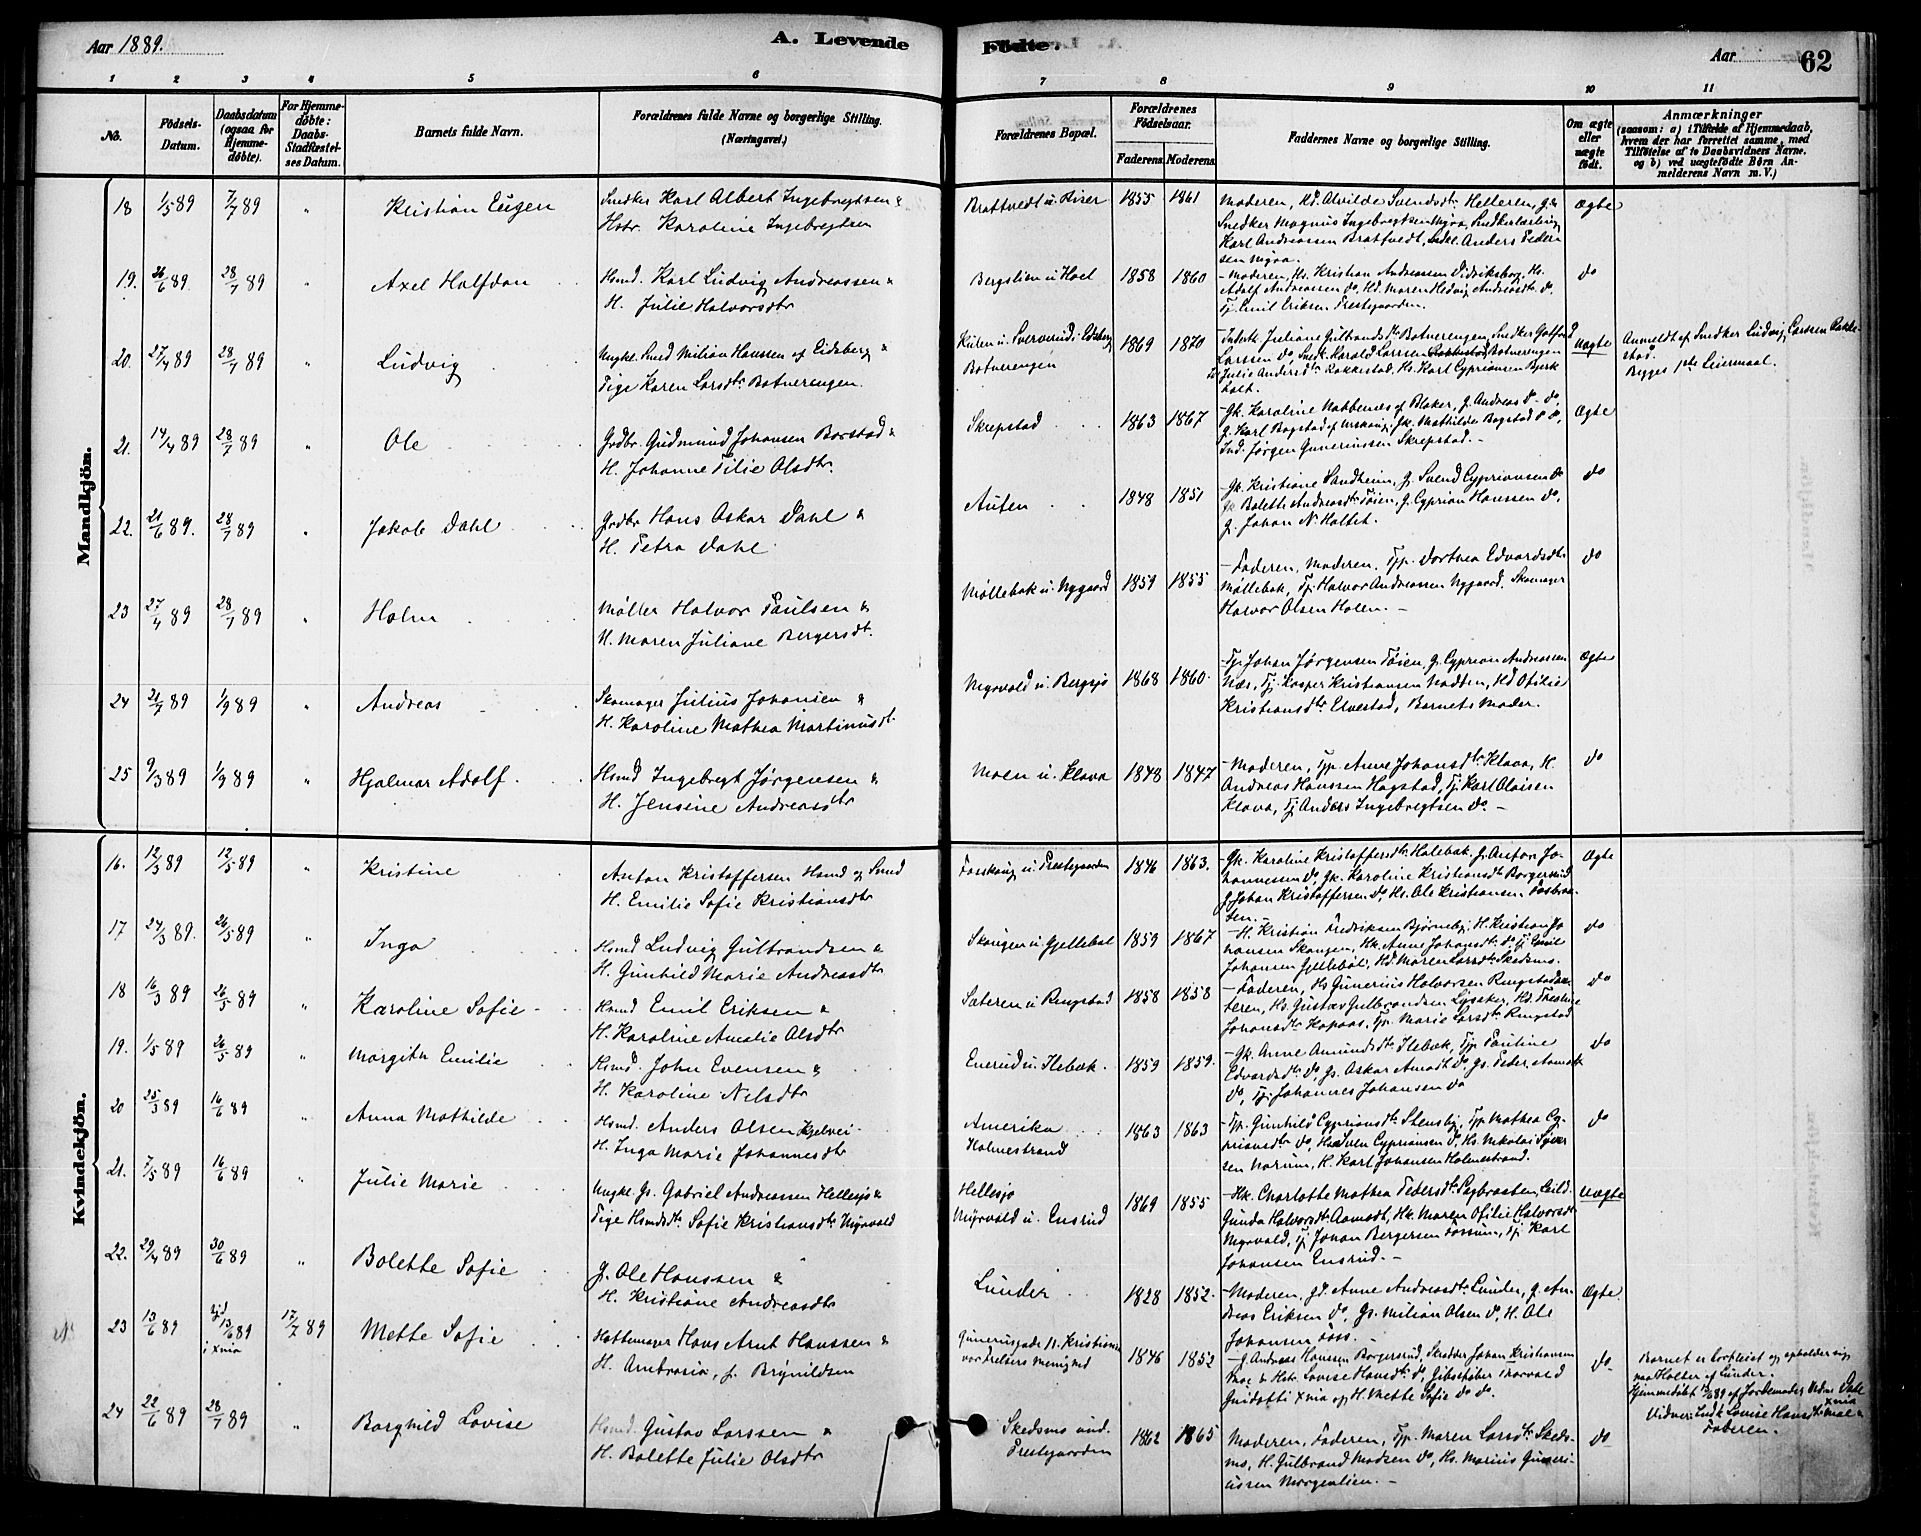 Aar 1889.
A. Levende
Födte.
Aar
62
1 2 3 4 5 6 7 8 9 10 11
No.
Födsels-Datum.
Daabsdatum (ogsaa for Hjemme-døbte).
For Hjemme-døbte: Daabs-Stadfæstel-ses Datum.
Barnets fulde Navn.
Forældrenes fulde Navne og borgerlige Stilling. (Næringsvei.)
Forældrenes Bopæl.
Forældrenes Födselsaar.
Faderens. Moderens.
Faddernes Navne og borgerlige Stilling.
Om ægte eller uægte födt.
Anmærkninger
(saasom: a) i Tilfælde af Hjemmedaab,
hvem der har forrettet samme, med
Tilföielse af to Daabsvidners Navne.
og b) ved uægtefödte Börn An-
melderens Navn m. V.)
Mandkjön.
18 1/5 89 7/7 89 " Kristian Eugen
Snedker Karl Albert Ingebregtsen &
Hstr. Karoline Ingebregtsen
Brattvedt u. Riser 1855 1861
Moderen, Kd. Alvilde Svendsdtr Helleren,
Snedker Magnus Ingebregtsen Myra, Snedkerlærling
Karl Andreassen Brattvedt, Anders Peder-
sen Myra.
Ægte
19. 26/6 89 28/7 89 " Axel Halfdan
Hsmd. Karl Ludvig Andreassen &
H. Julie Halvorsdtr
Bergslien u Hoel 1858 1860
- Moderen, Hs. Kristian Andreassen Didriksborg, Hs.
Adolf Andreassen do, Hd. Maren Hedvig Andreasdtr do.
Tj. Emil Eriksen Prestegaarden.
do
20. 27/4 89 28/7 89 " Ludvig
Ungkl. Smed Milian Hanssen af Eidsberg &
Pige Karen Larsdtr Botnerengen.
Kulen u. Sververud i Edsberg
Botnerengen
1869 1870
Inderk. Juliane Gulbrandsdtr Botnerengen, Snedker Gotfred
Larssen do, Snedk. Harald Larssen Botnerengen
Julie Andersdtr Rakkestad, Hs. Karl Cypriansen Bjerk
holt.
Uægte
Anmeldt af Snedker Ludvig Larssen Rakke-
stad.
Begges 1ste Leiermaal.
21. 14/4 89 28/7 89 " Ole
Grdbr. Gudmund Johansen Borstad &
H. Johanne Tilie Olsdtr.
Skrepstad 1863 1867
Gk. Karoline Nabbenæs af Blaker, g. Andreas do do,
g. Karl Bogstad af Urskoug, Gk. Mathilde Bogstad do do,
Ind. Jørgen Guneriussen Skrepstad. -
Ægte
22. 21/6 89. 28/7 89 " Jakob Dahl
Grdbr. Hans Oskar Dahl &
H. Petra Dahl.
Auten 1848 1851
Gk. Kristiane Sandheim, g. Svend Cypriansen do
Gk Bolette Andreasdtr Tøien, g. Cyprian Hanssen do,
g. Johan N. Holtet.
do
23 27/4 89 28/7 89 " Holm
Møller Halvor Paulsen &
H. Maren Juliane Bergersdtr.
Møllebak u. Nygaard 1859 1855
- Faderen, Moderen, Tjp. Dorthea Edvardsdtr
Møllebak, Tj. Halvor Andreassen Nygaard, Skomager
Halvor Olsen Holen. -
do
24 21/7 89 1/9 89 " Andreas
Skomager Julius Johansen &
H. Karoline Mathea Martinusdtr.
Myrvold u. Bergsjø 1868 1860.
- Tj. Johan Jørgensen Tøien, g. Cyprian Andreassen
Næs, Tj. Kasper Kristiansen Nadten, Kd Otilie
Kristiansdtr Elvestad, Barnets Moder.
Ægte
25 9/3 89 1/9 89 " Hjalmar Adolf
Hsmd Ingebregt Jørgensen &
H. Jensine Andreasdtr
Moen u. Klova 1848 1847
- Moderen, Tjp. Anne Johansdtr Klova, H.
Andreas Hanssen Hagstad, Tj. Karl Olaisen
Klova, Tj Anders Ingebregtsen do. -
do
Kvindekjön.
16. 12/3 89 12/5 89 " Kristine
Anton Kristoffersen Hsmd og Smed
H. Emilie Sofie Kristiansdtr
Fosskoug u. Prestegaarden 1846 1863.
- Gk. Karoline Kristoffersdtr Halebak, g. Anton Jo-
hannessen do, Gk. Karoline Kristiansdtr Borgersrud
g. Johan Kristoffersen do, Hs. Ole Kristiansen Fosbraa-
ten. -
Ægte
17 24/3 89. 26/5 89 " Inga
Hsmd Ludvig Gulbrandsen &
H. Gunhild Marie Andreasdtr
Skougen u Gjellebøl 1859 1867
- H. Kristian Fredriksen Bjørneby, H. Kristian Jo
hansen Skougen, Hk. Anne Johansdtr do, Tj. Emil
Johansen Gjellebøl, Kd. Maren Larsdtr Skedsmo.
do
18 16/3 89 26/5 89 " Karoline Sofie
Hsmd Emil Eriksen &
H. Karoline Amalie Olsdtr
Sæteren u Ringstad 1858 1858
- Faderen, Hs Gunerius Halvorsen Ringstadsæ-
teren, Hs. Gustav Gulbrandsen Lysaker, Kd. Thestine
Johansdtr Kopaas, Tjp. Marie Larsdtr Ringstad
do
19. 1/5 89 26/5 89 " Margith Emilie
Hsmd. John Evensen &
H. Karoline Nilsdtr
Enerud u. Ilebæk. 1859 1859.
- Gk. Anne Amundsdtr Ilebæk, Tjp Pauline
Edvardsdtr do, Gs. Oskar Amodt do, Gs. Peder Aamodt
do, Tj. Johannes Johansen do
do
20 25/3 89 16/6 89 " Anna Mathilde
Hsmd. Anders Olsen Kjelvei
H. Inga Marie Johannesdtr
Amerika
Holmestrand
1863 1863
Tjp. Gunhild Cypriansdtr Stensby, Tjp Mathea Cy-
priansdtr do, Hs Sven Cypriansen do, Hs. Nikolai Syver
sen Narum, H. Karl Johansen Holmestrand.
do
21. 7/5 89 16/6 89 Julie Marie
Ungkl. Gs. Gabriel Andreassen Hellesjø &
Pige Hsmdsdtr. Sofie Kristiansdtr Myrvold
Hellesjø
Myrvold u. Ensrud
1869 1855
- Hk. Charlotte Mathea Pedersdtr Sagbraaten, Guld-
Gunda Halvorsdtr Aamodt, Hk. Maren Otilie Halvorsdtr
Myrvold, Tj Johan Bergersen Fossum, Tj. Karl
Johansen Ensrud. -
Uægte
22. 29/4 89 30/6 89 " Bolette Sofie
g. Ole Hanssen &
H. Kristiane Andreasdtr
Lunder 1828 1852.
- Moderen, gd. Anne Andreasdtr Lunder, g. An-
dreas Eriksen do, Gs. Milian Olsen do, H. Ole
Johansen Foss. -
Ægte
23 13/6 89 13/6 89 i Xnia 17/7 89 Mette Sofie
Hattemager Hans Arnt Hanssen &
H. Ambrosia, f. Brynildsen
Gunerusgade 11. Kristiania
vor Frelsers Menighed
1846 1852
- g. Andreas Hansen Borgersrud, Skrædder Johan Kristiansen
Moe & Hstr. Lovise Hansdtr do, Gibsstøber Morvald
Guidotti Xnia og H. Mette Sofie do do.
do
Barnet er bortleiet og opholder sig
paa Holter af Lunder.
Hjemmedøbt 13/6 89 af Jordemoder Vedm Dahl Xnia
Vidner: Indk Lovise Hansdtr Moe &
Faderen.
24 22/6 89 28/7 89 " Borghild Lovise
Hsmd. Gustav Larssen &
H. Bolette Julie Olsdtr
Skedsmo und.
Prestegaarden
1862 1865
Moderen, Faderen, Tjp. Maren Larsdtr Skeds-
mo, H. Gulbrand Madsen do, Hs. Marius Guneri-
ussen Morgenlien. -
do